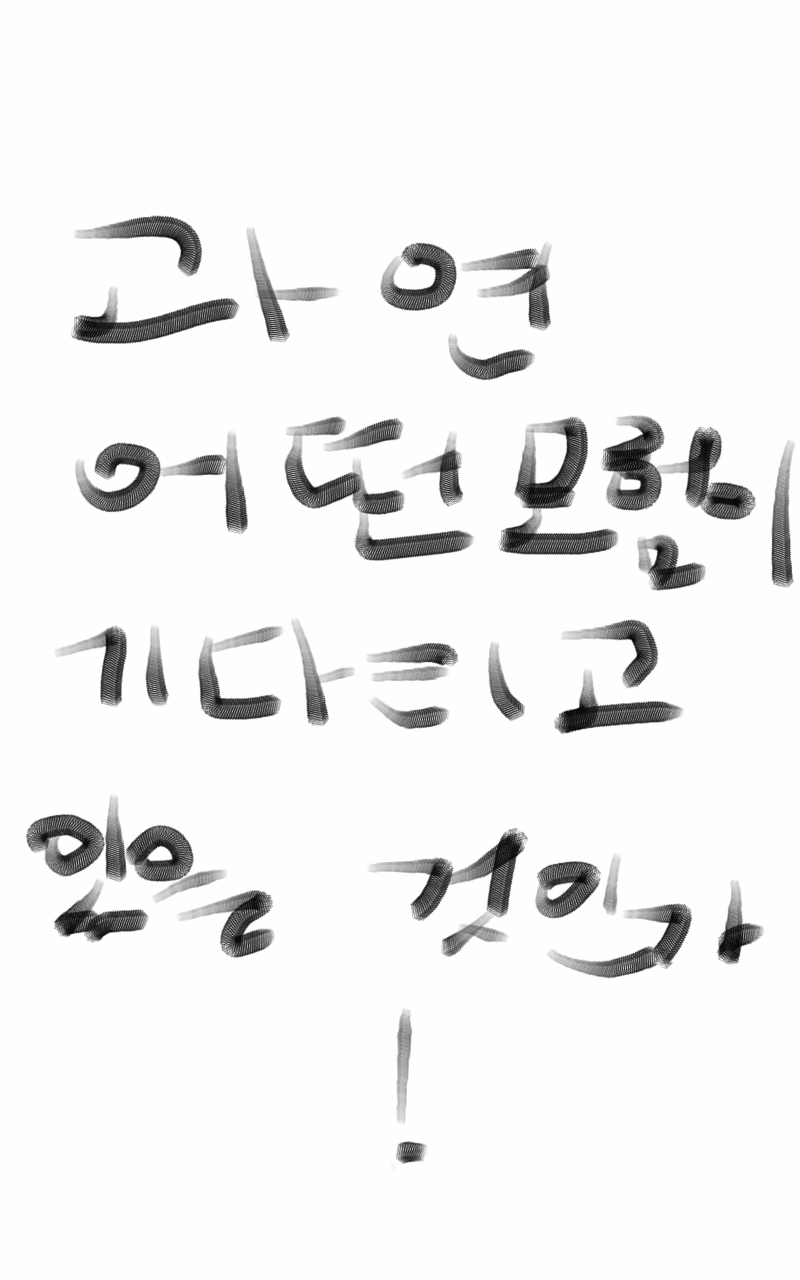 과연
어떤 모험이
기다리고
있을 것인가
!